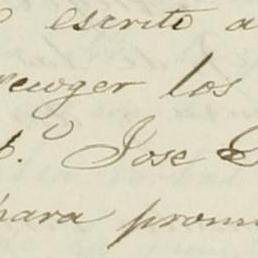 escrito a
recoger los
Jose
para prom